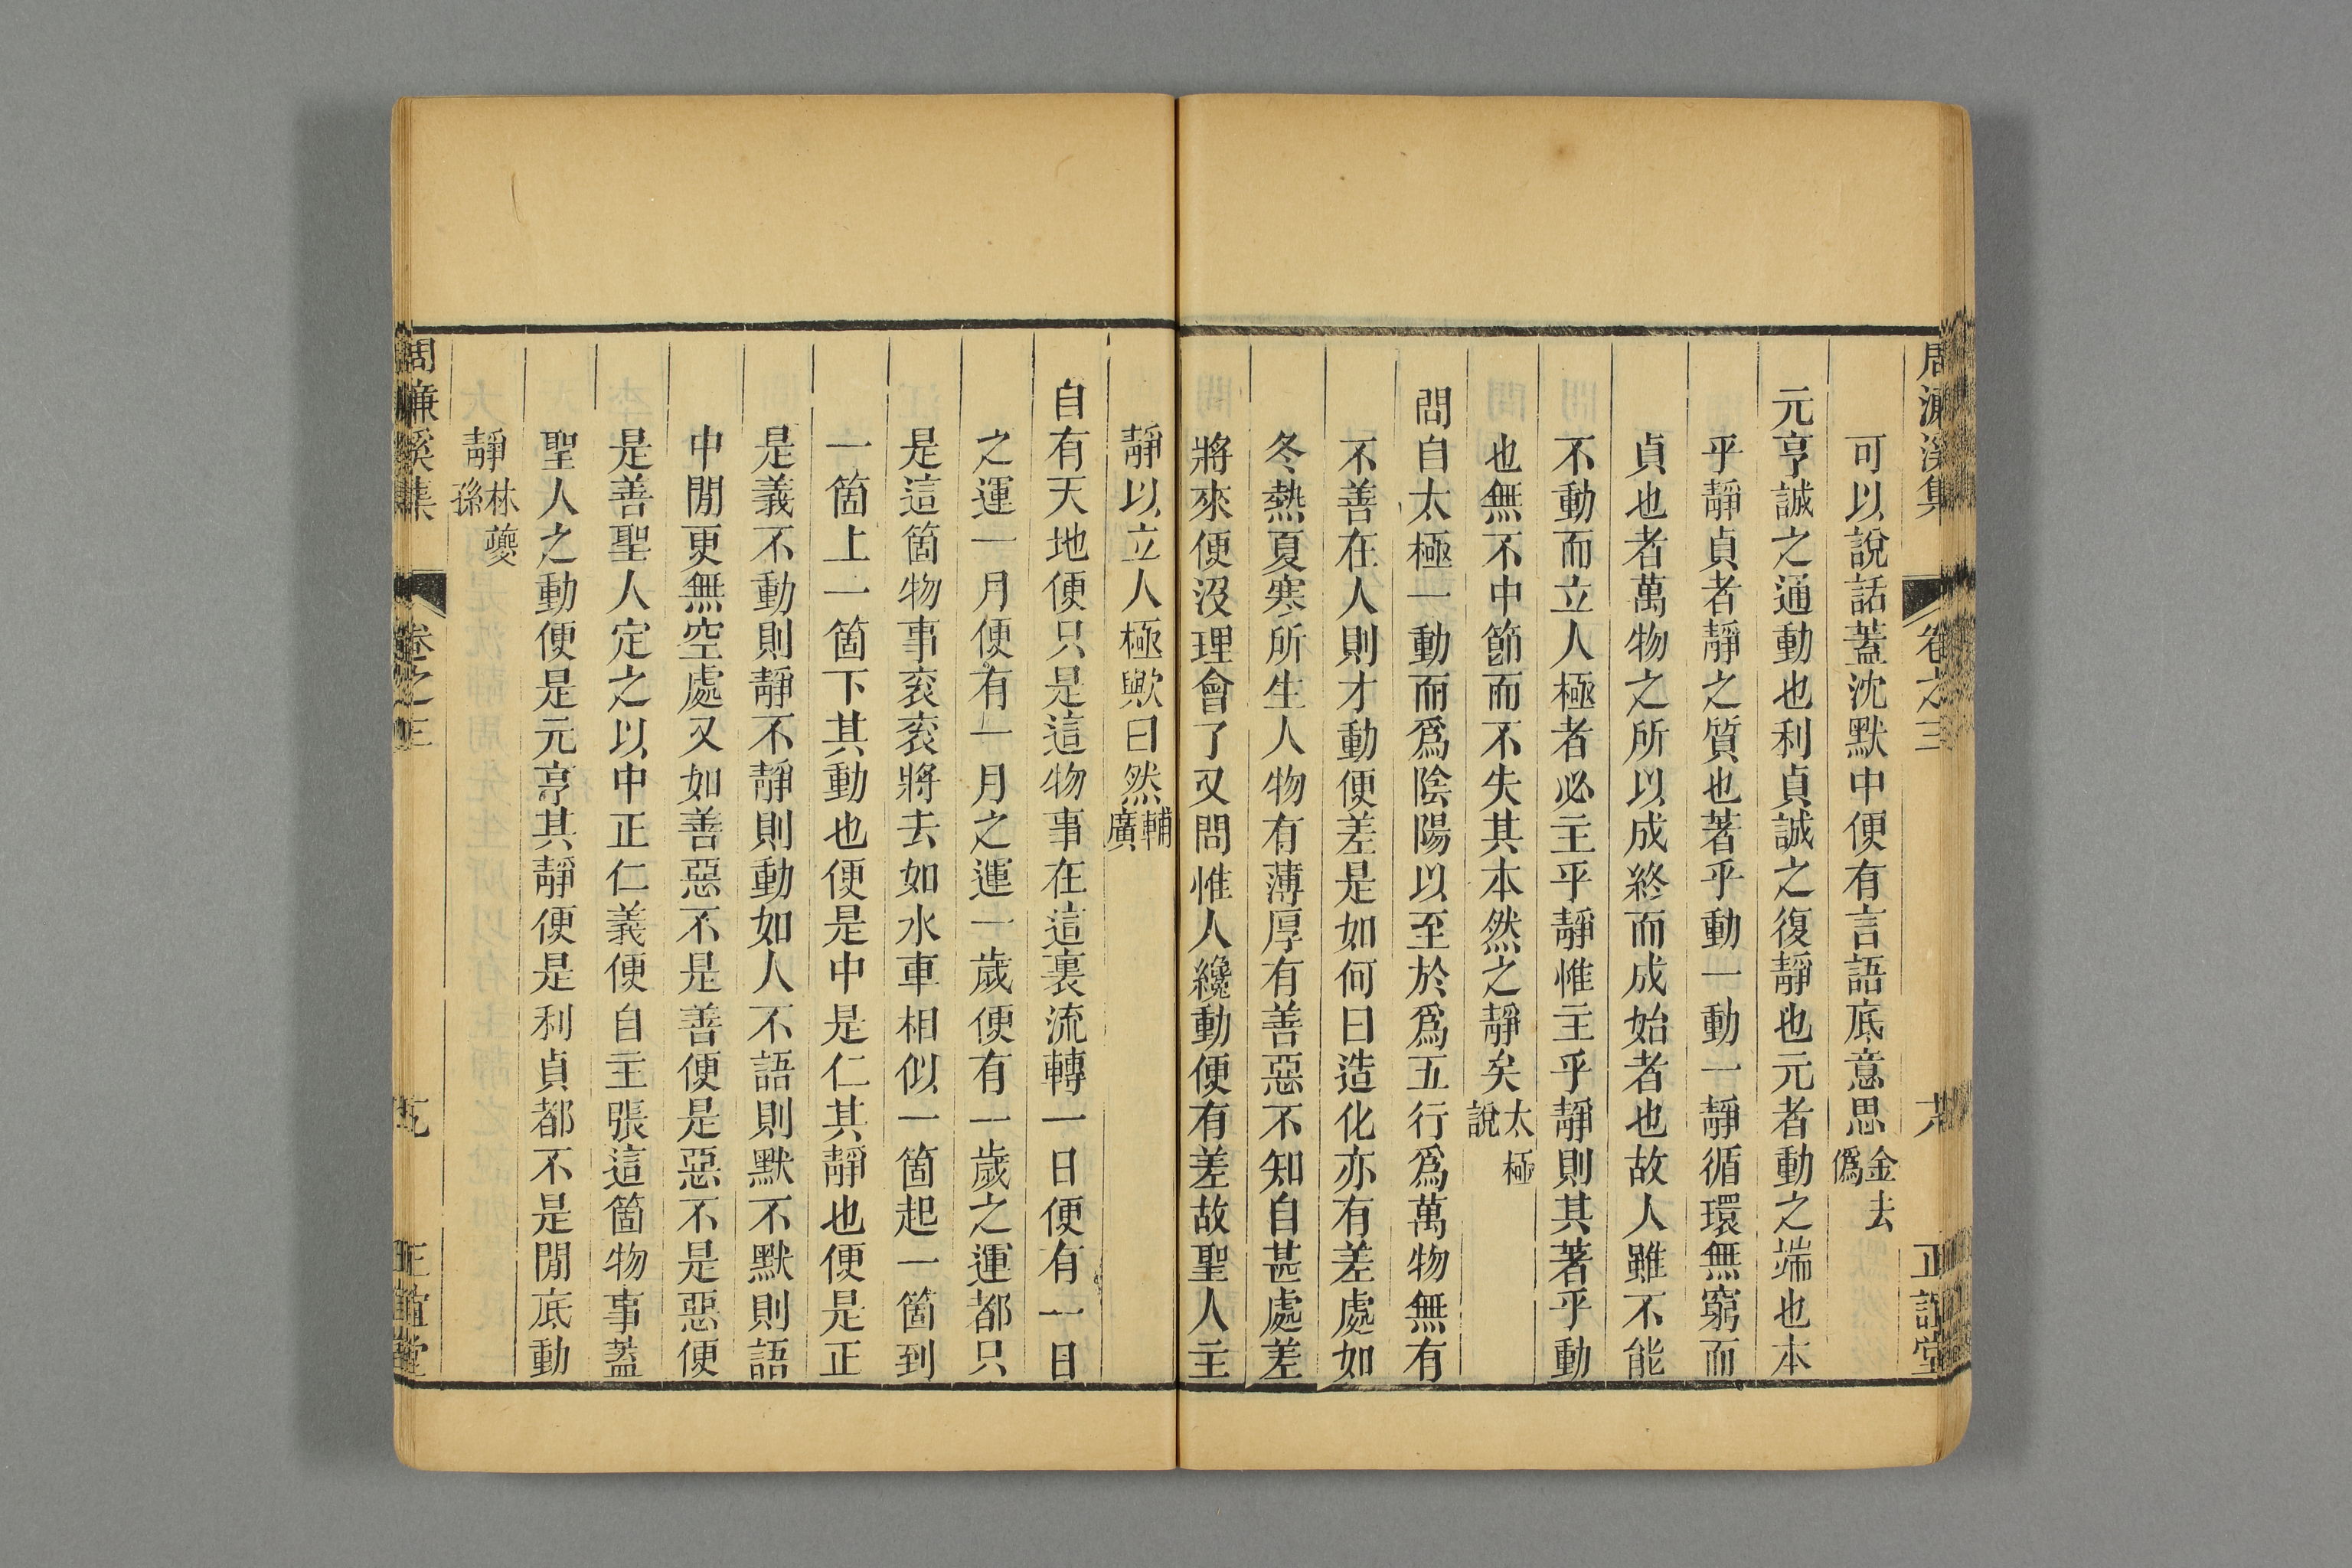 周濂溪集 卷之三 六 正誼堂
可以說話蓋沈默中便有言語底意思金去僞
元亨誠之通動也利貞誠之復靜也元者動之端也本
乎靜貞者靜之質也著乎動一動一靜循環無窮而
貞也者萬物之所以成終而成始者也故人雖不能
不動而立人極者必主乎靜惟主乎靜則其著乎動
也無不中節而不失其本然之靜矣太極說
問自太極一動而爲陰陽以至於爲五行爲萬物無有
不善在人則才動便差是如何曰造化亦有差處如
冬熱夏寒所生人物有薄厚有善惡不知自甚處差
將來便沒理會了又問惟人纔動便有差故聖人主
靜以立人極歟曰然輔廣
自有天地便只是這物事在這裏流轉一日便有一日
之運一月便有一月之運一歲便有一歲之運都只
是這箇物事衮衮將去如水車相似一箇起一箇到
一箇上一箇下其動也便是中是仁其靜也便是正
是義不動則靜不靜則動如人不語則默不默則語
中閒更無空處又如善惡不是善便是惡不是惡便
是善聖人定之以中正仁義便自主張這箇物事蓋
聖人之動便是元亨其靜便是利貞都不是閒底動
靜林夔孫
周濂溪集 卷之三 正誼堂